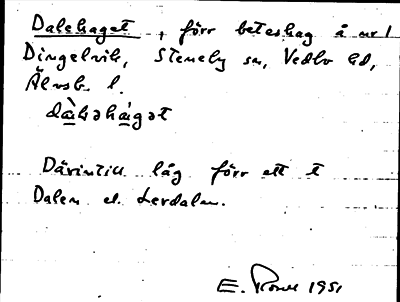 Dalehaget, förr beteshag å nr 1
Dingelvik, Steneby sn, Vedbo hd,
Älvsb. l.
dàləhágət
Därintill låg förr ett t
Dalen el. Lerdalen.
E. 1951